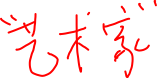 “艺术家”